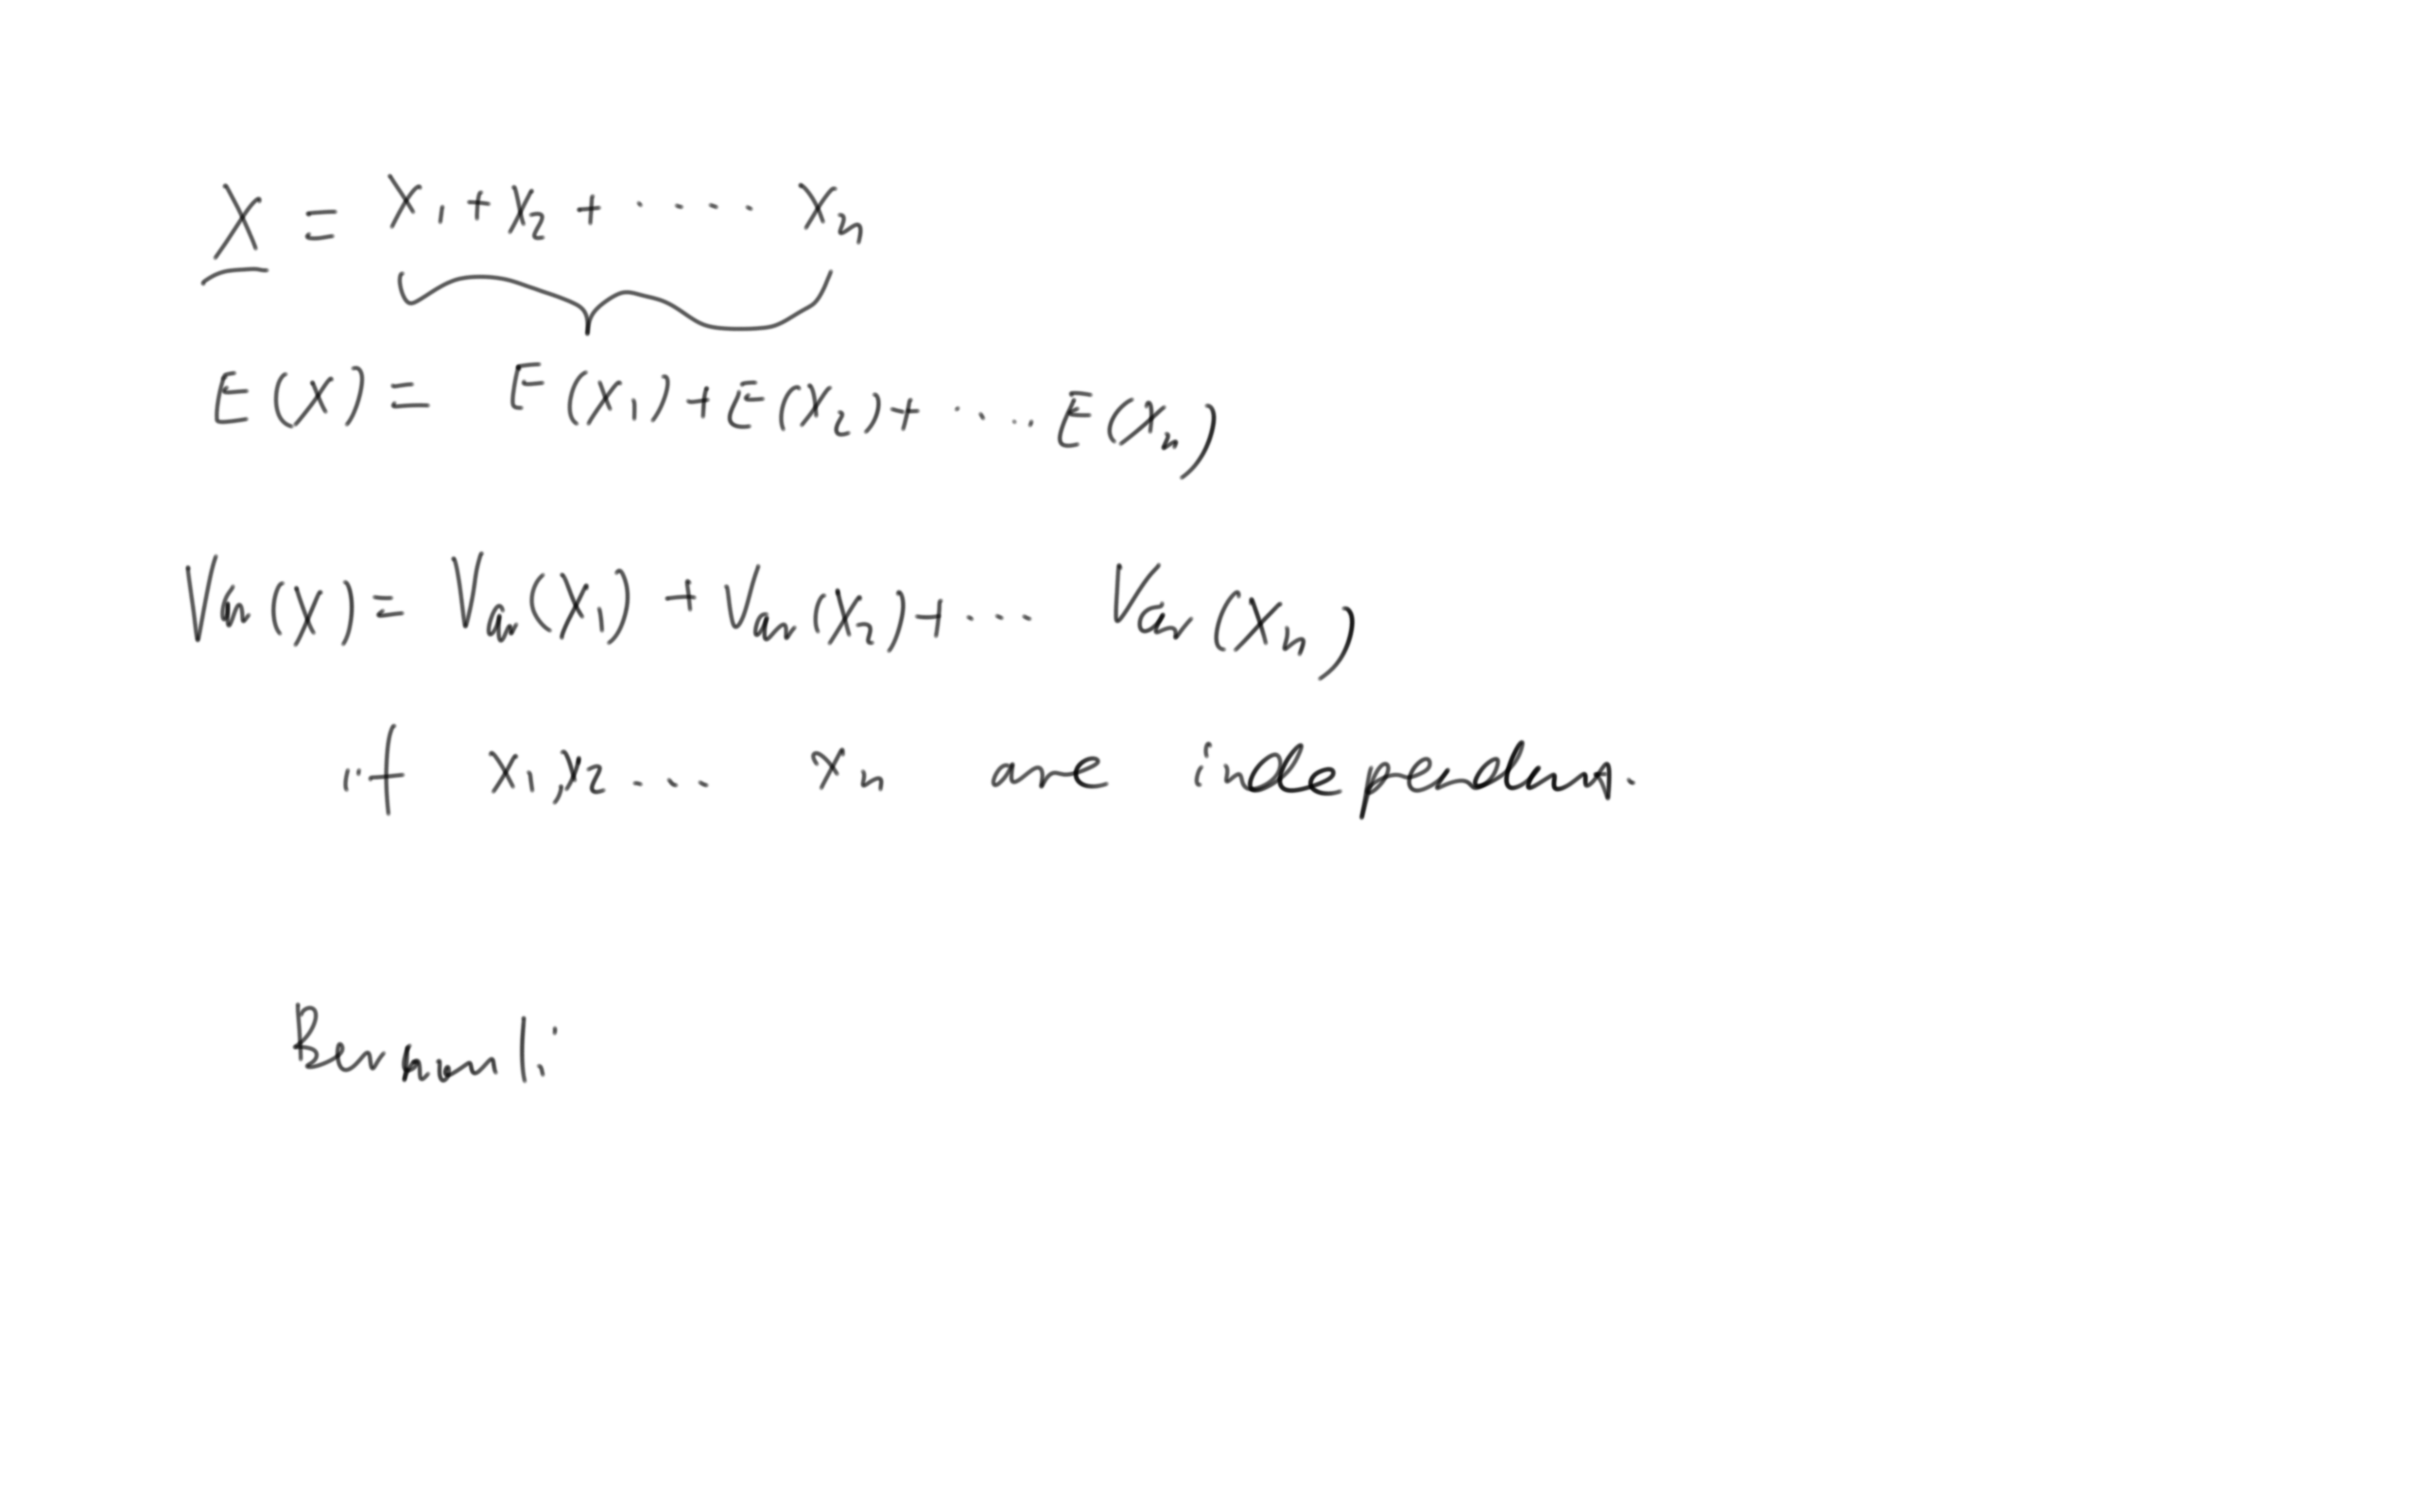 X = X₁ + X₂ + .... Xₙ
E(X) = E(X₁) + E(X₂) + .... E(Xₙ)
Var(X) = Var(X₁) + Var(X₂) + ... Var(Xₙ)
if X₁, X₂ ... Xₙ are independent.
Bernoulli